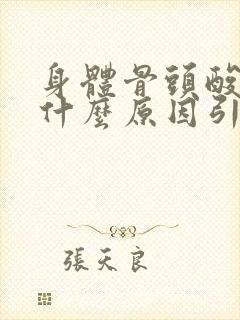 身體骨頭酸
什麼原因引
張天良